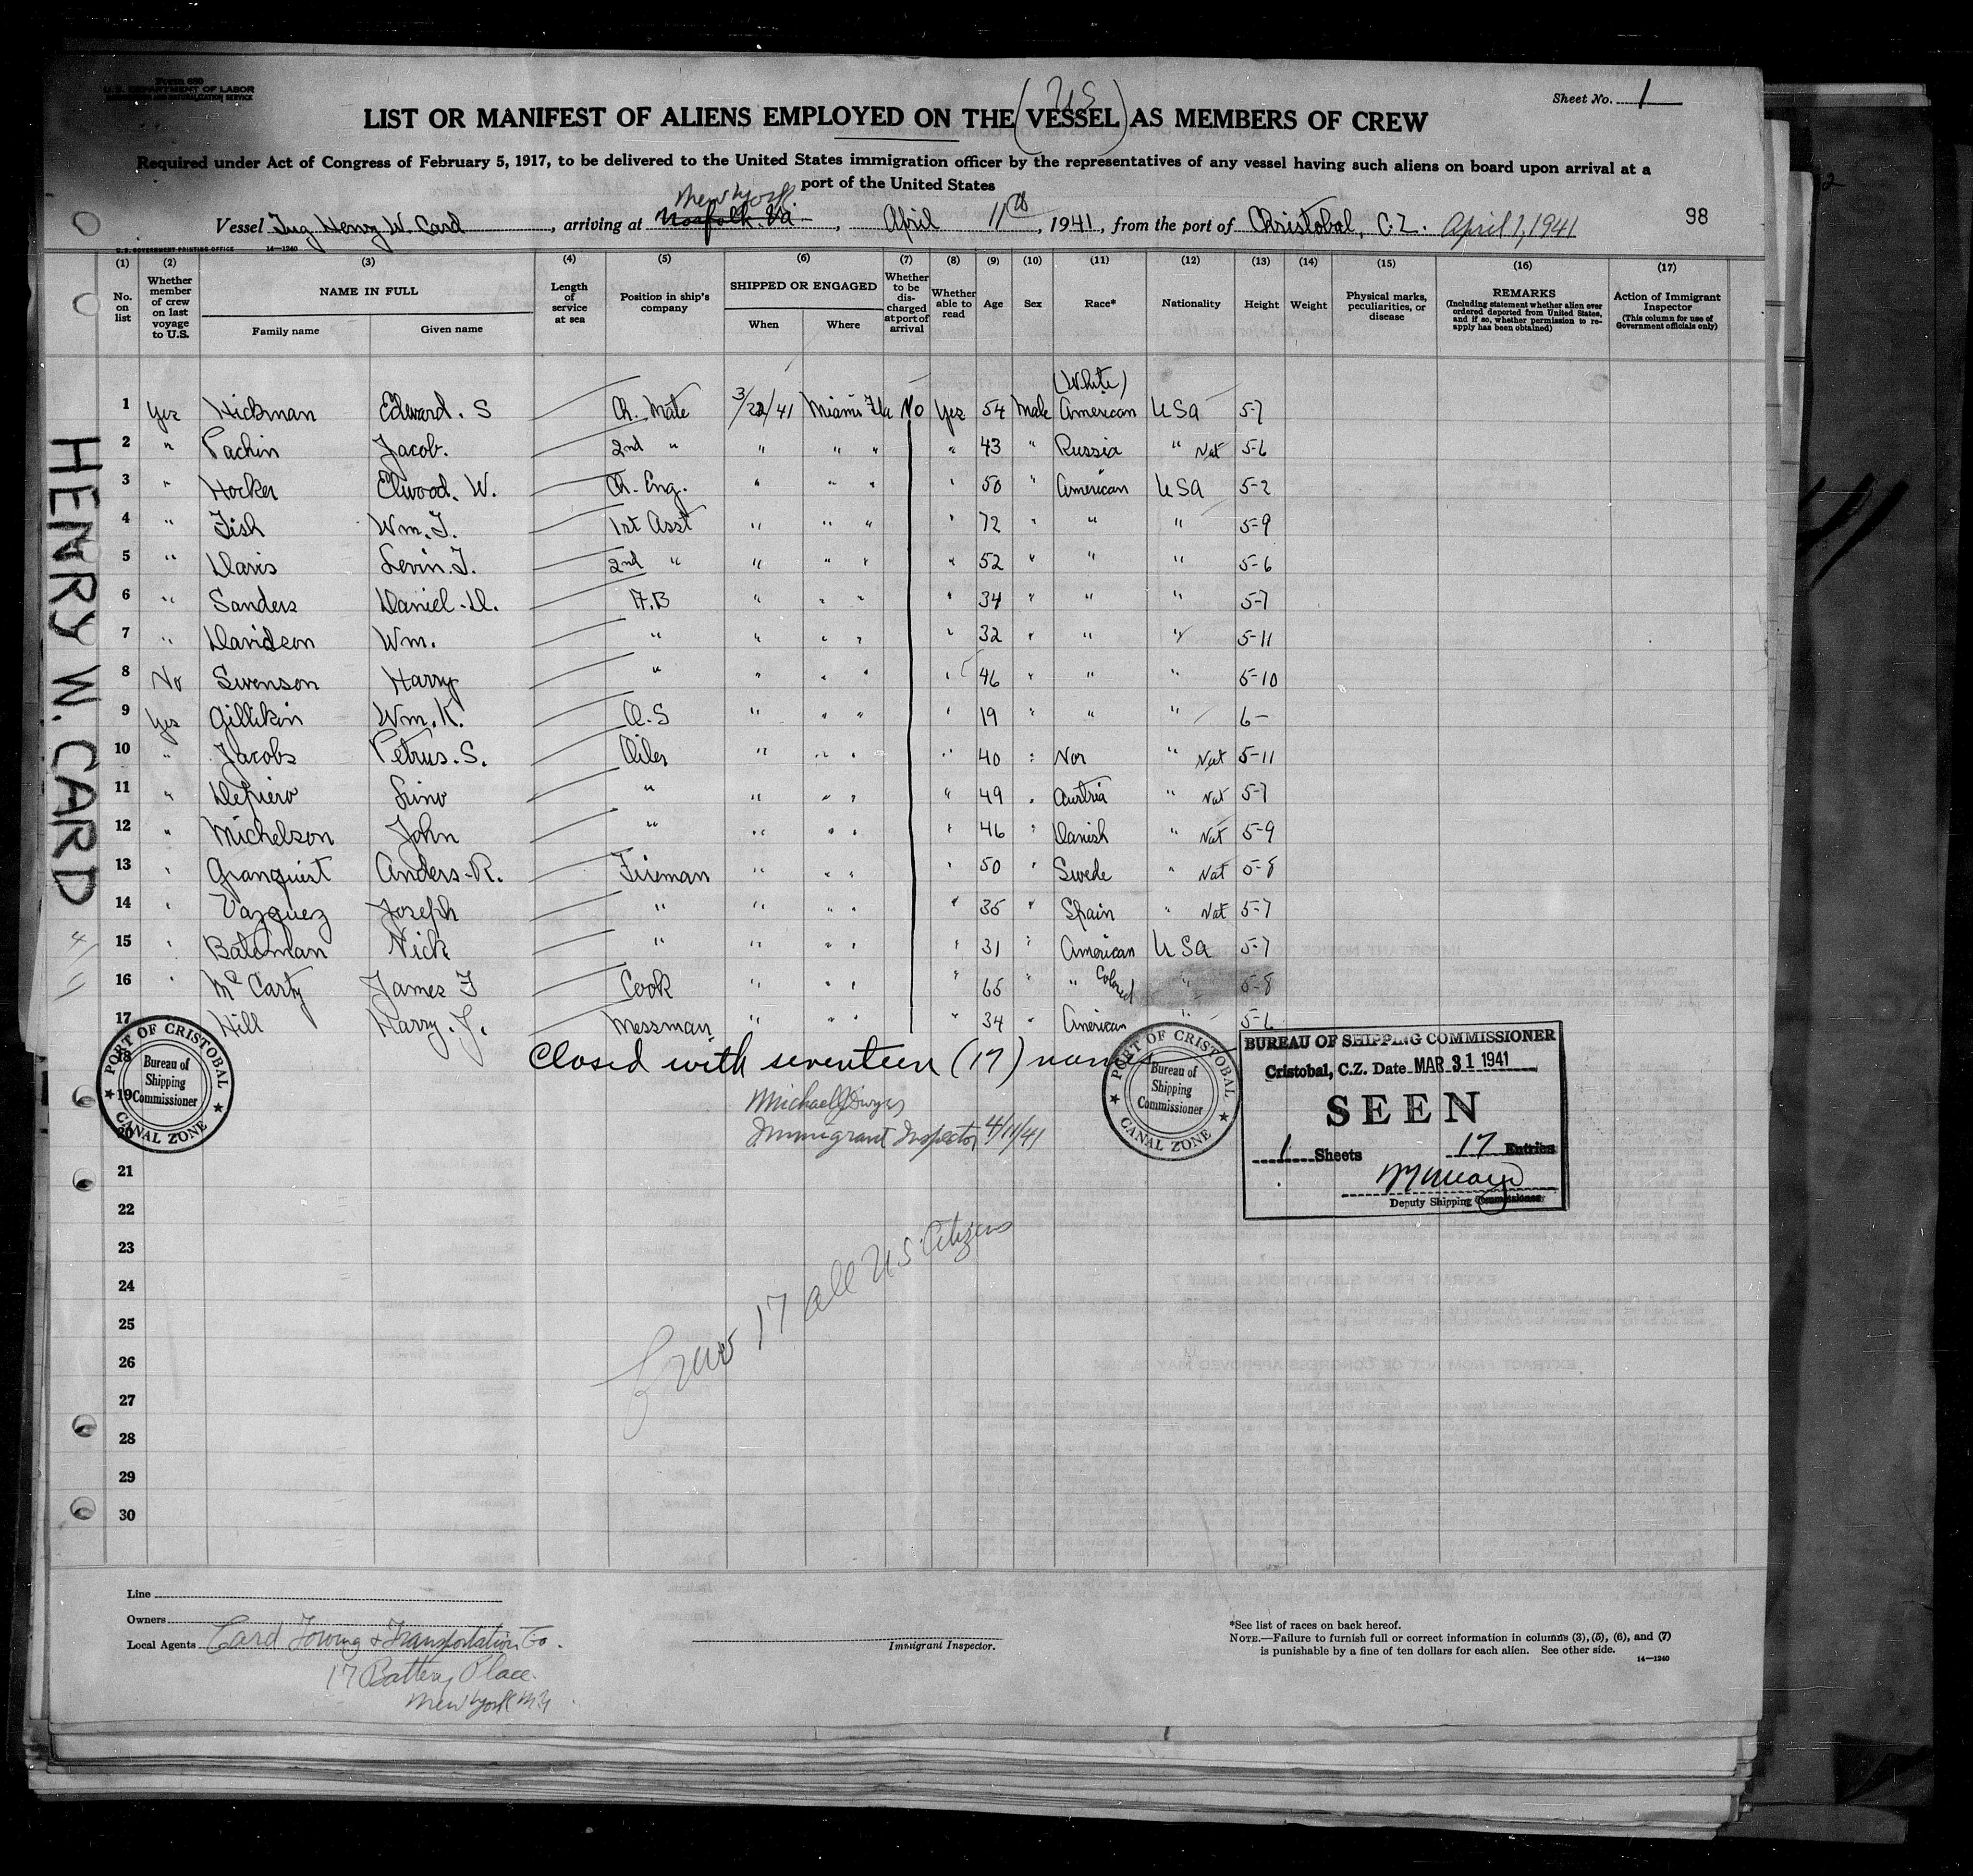 Form 680
U.S. DEPARTMENT OF LABOR
IMMIGRATION AND NATURALIZATION SERVICE
Sheet No. 1
(US)
LIST OR MANIFEST OF ALIENS EMPLOYED ON THE VESSEL AS MEMBERS OF CREW
Required under Act of Congress of February 5, 1917, to be delivered to the United States immigration officer by the representatives of any vessel having such aliens on board upon arrival at a
port of the United States
New York
Vessel Tug Henry W. Card, arriving at Norfolk. Va, April 11th, 1941, from the port of Christobal, C.Z. April 1, 1941
98
U. S. GOVERNMENT PRINTING OFFICE 14—1240
(1) (2) (3) (4) (5) (6) (7) (8) (9) (10) (11) (12) (13) (14) (15) (16) (17)
No. on list
Whether member of crew on last voyage to U.S.
NAME IN FULL
Family name Given name
Length of service at sea
Position in ship's company
SHIPPED OR ENGAGED
When Where
Whether to be discharged at port of arrival
Whether able to read
Age
Sex
Race*
Nationality
Height
Weight
Physical marks, peculiarities, or disease
REMARKS
(Including statement whether alien ever ordered deported from United States, and if so, whether permission to reapply has been obtained)
Action of Immigrant Inspector
(This column for use of Government officials only)
(White)
1 Yes Hickman Edward. S Ch. Mate 3/22/41 Miami Fla No Yes 54 Male American USA 5-7
2 " Pachin Jacob. 2nd " " " " " 43 " Russia " Nat 5-6
3 " Hocker Elwood. W. Ch. Eng. " " " " 50 " American USA 5-2
4 " Fish Wm. T. 1st Asst " " " " 72 " " " 5-9
5 " Davis Levin. T. 2nd " " " " " 52 " " " 5-6
6 " Sanders Daniel. D. A.B " " " " 34 " " " 5-7
7 " Davidson Wm. " " " " " 32 " " " 5-11
8 No Swenson Harry " " " " " 46 " " " 5-10
9 Yes Gillikin Wm. K. O.S " " " " 19 " " " 6-
10 " Jacobs Petrus. S. Oiler " " " " 40 " Nor " Nat 5-11
11 " Depiero Lino " " " " " 49 " Austria " Nat 5-7
12 " Michelson John " " " " " 46 " Danish " Nat 5-9
13 " Granquist Anders. R. Fireman " " " " 50 " Swede " Nat 5-8
14 " Vazquez Joseph " " " " " 35 " Spain " Nat 5-7
15 " Bateman Nick " " " " " 31 " American USA 5-7
16 " McCarty James F Cook " " " " 65 " " Colored " 5-8
17 Hill Harry. J. Messman " " " " 34 " American " 5-6
Closed with seventeen (17) names
Michael J Dwyer
Immigrant Inspector 4/11/41
HENRY W. CARD
PORT OF CRISTOBAL
Bureau of
Shipping
Commissioner
CANAL ZONE
PORT OF CRISTOBAL
Bureau of
Shipping
Commissioner
CANAL ZONE
BUREAU OF SHIPPING COMMISSIONER
Cristobal, C.Z. Date MAR 31 1941
SEEN
1 Sheets 17 Entries
Deputy Shipping Commissioner
18
19
20
21
22
23
24
25
26
27
28
29
30
Crew 17 all US Citizens
Line
Owners
Local Agents Card Towing & Transportation Co.
17 Battery Place.
New York N.Y
Immigrant Inspector.
*See list of races on back hereof.
NOTE.—Failure to furnish full or correct information in columns (3), (5), (6), and (7)
is punishable by a fine of ten dollars for each alien. See other side.
14—1240